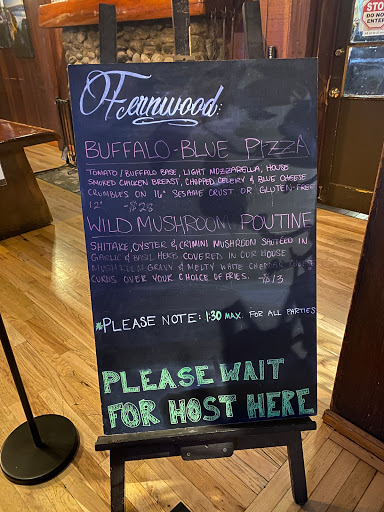 Fernwood:
BUFFALO-BLUE PIZZA
TOMATO/BUFFALO BASE, LIGHT MOZZARELLA, HOUSE
SMOKED CHICKEN BREAST, CHOPPED CELERY & BLUE CHEESE
CRUMBLES ON 16" SESAME CRUST OR GLUTEN-FREE
12" ~$28
WILD MUSHROOM POUTINE
SHIITAKE, OYSTER & CRIMINI MUSHROOM SAUTEED IN
GARLIC & BASIL HERB, COVERED IN OUR HOUSE
MUSHROOM GRAVY & MELTY WHITE CHEDDAR
CURDS OVER YOUR CHOICE OF FRIES. ~$13
*PLEASE NOTE: 1:30 MAX. FOR ALL PARTIES
PLEASE WAIT
FOR HOST HERE
STOP
DO NOT
ENTER